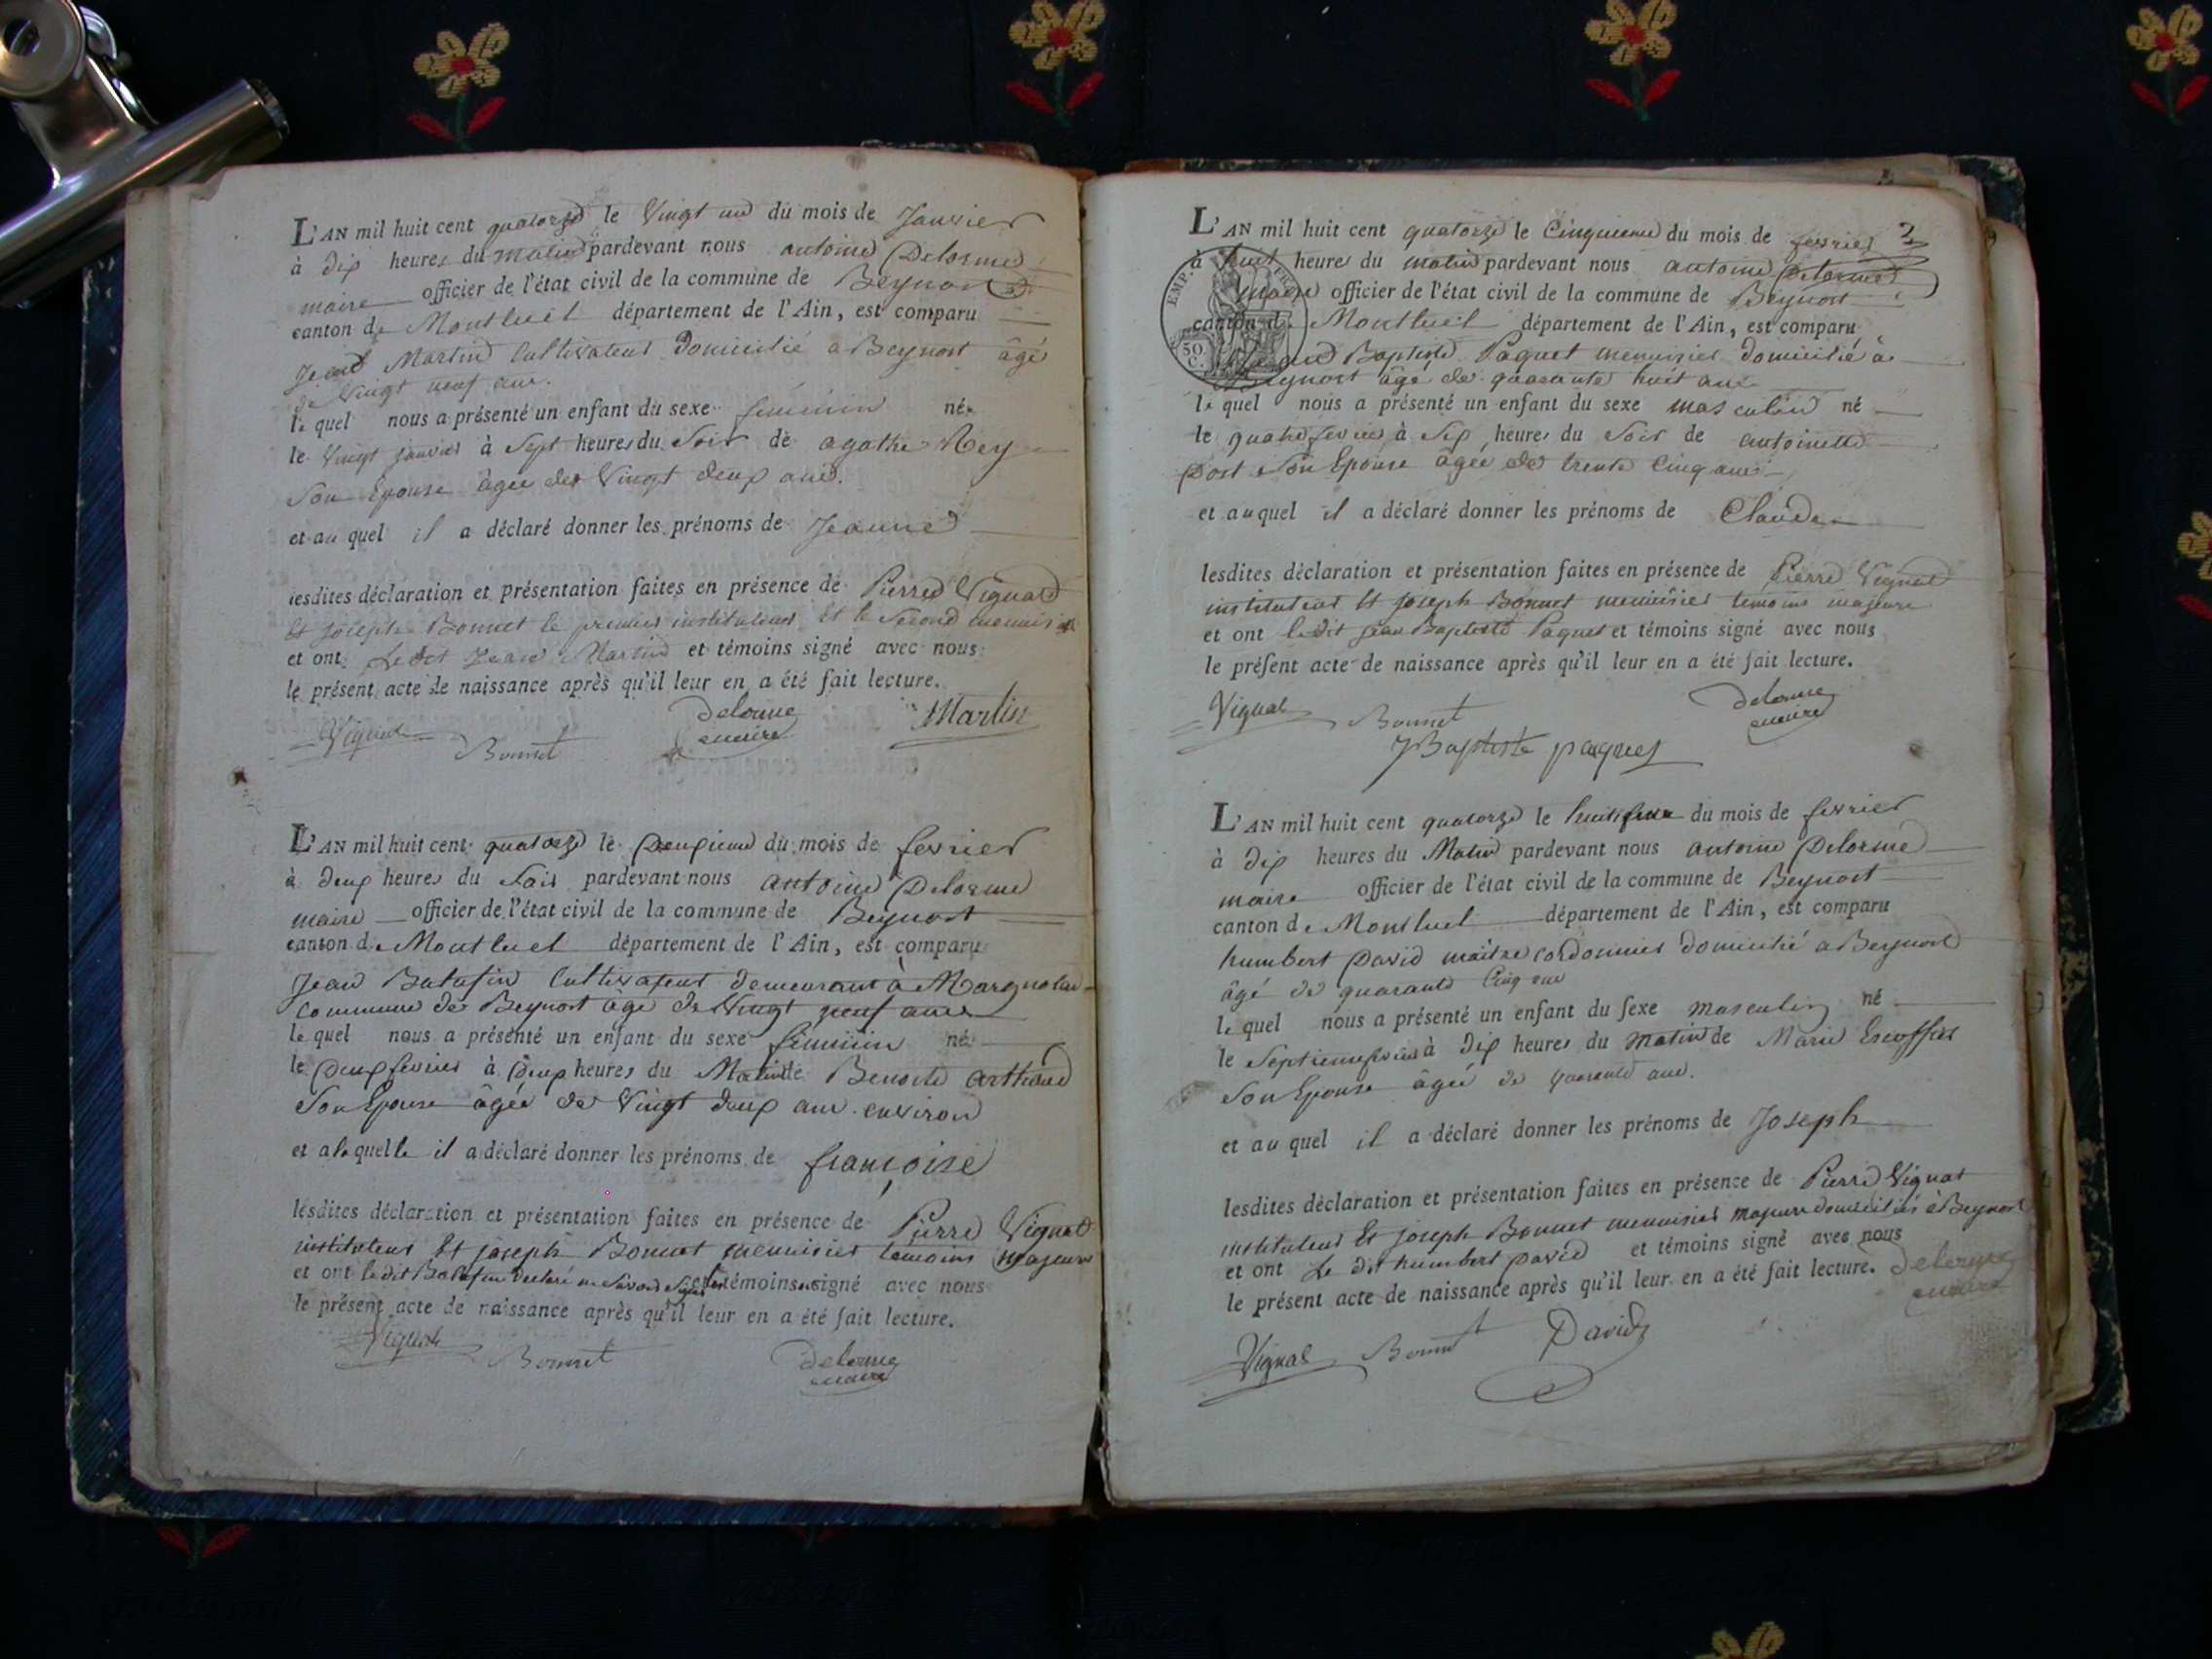 L'AN mil huit cent quatorze le Vingt un du mois de Janvier
à dix heures du matin pardevant nous antoine Delorme
maire officier de l'état civil de la commune de Beynost
canton de Montluel département de l'Ain, est comparu
Jean Martin Cultivateur domicilié à Beynost âgé
de Vingt neuf ans.
le quel nous a présenté un enfant du sexe féminin né
le Vingt janvier à Sept heures du Soir de agathe Rey
Son Epouse âgée de Vingt deux ans.
et au quel il a déclaré donner les prénoms de Jeanne
lesdites déclaration et présentation faites en présence de Pierre Vignal
Et joseph Bonnet le premier instituteur Et le Second menuisier
et ont Ledit Jean Martin et témoins signé avec nous
le présent acte de naissance après qu'il leur en a été fait lecture.
Vignal Bonnet Delorme maire Martin
L'AN mil huit cent quatorze le Deuxieme du mois de fevrier
à deux heures du Soir pardevant nous antoine Delorme
maire officier de l'état civil de la commune de Beynost
canton de Montluel département de l'Ain, est comparu
Jean Batafin Cultivateur demeurant à Margnolas
Commune de Beynost âgé de Vingt neuf ans
le quel nous a présenté un enfant du sexe féminin né
le Deux fevrier à Deux heures du Matin de Benoite arthaud
Son Epouse âgée de Vingt deux ans environ
et a laquelle il a déclaré donner les prénoms de françoise
lesdites déclaration et présentation faites en présence de Pierre Vignal
instituteur Et joseph Bonnet menuisier temoins majeurs
et ont ledit Batafin declaré ne Savoir Signer et les témoins ont signé avec nous
le présent acte de naissance après qu'il leur en a été fait lecture.
Vignal Bonnet Delorme maire
L'AN mil huit cent quatorze le Cinquieme du mois de fevrier
à huit heures du matin pardevant nous antoine Delorme
maire officier de l'état civil de la commune de Beynost
canton de Montluel département de l'Ain, est comparu
EMP. FRA
50 C.
Jean Baptiste Paquet menuisier domicilié à
Beynost âgé de quarante huit ans
le quel nous a présenté un enfant du sexe masculin né
le quatre fevrier à Six heures du Soir de antoinette
Post Son Epouse âgée de trente Cinq ans
et au quel il a déclaré donner les prénoms de Claude
lesdites déclaration et présentation faites en présence de Pierre Vignal
instituteur Et joseph Bonnet menuisier temoins majeurs
et ont ledit Jean Baptiste Paquet et témoins signé avec nous
le présent acte de naissance après qu'il leur en a été fait lecture.
Vignal Bonnet Delorme maire
JBaptiste paquet
L'AN mil huit cent quatorze le huitieme du mois de fevrier
à dix heures du Matin pardevant nous antoine Delorme
maire officier de l'état civil de la commune de Beynost
canton de Montluel département de l'Ain, est comparu
humbert David maitre cordonnier domicilié a Beynost
âgé de quarante Cinq ans
le quel nous a présenté un enfant du sexe masculin né
le Septieme fevrier à dix heures du matin de Marie Escoffier
Son Epouse âgée de quarante ans.
et au quel il a déclaré donner les prénoms de Joseph
lesdites déclaration et présentation faites en présence de Pierre Vignal
instituteur Et joseph Bonnet menuisier majeurs domiciliés à Beynost
et ont Le dit humbert David et témoins signé avec nous
le présent acte de naissance après qu'il leur en a été fait lecture. Delorme maire
Vignal Bonnet David